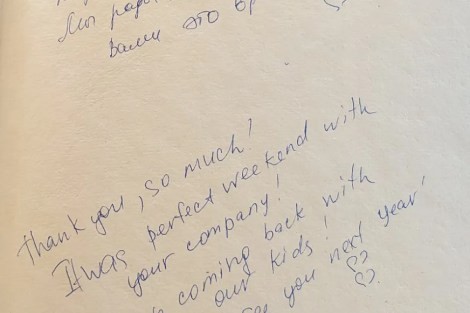 Мы рад
Вами это вр
Thank you, so much!
It was perfect weekend with
your company!
coming back with
our kids!
you next year!